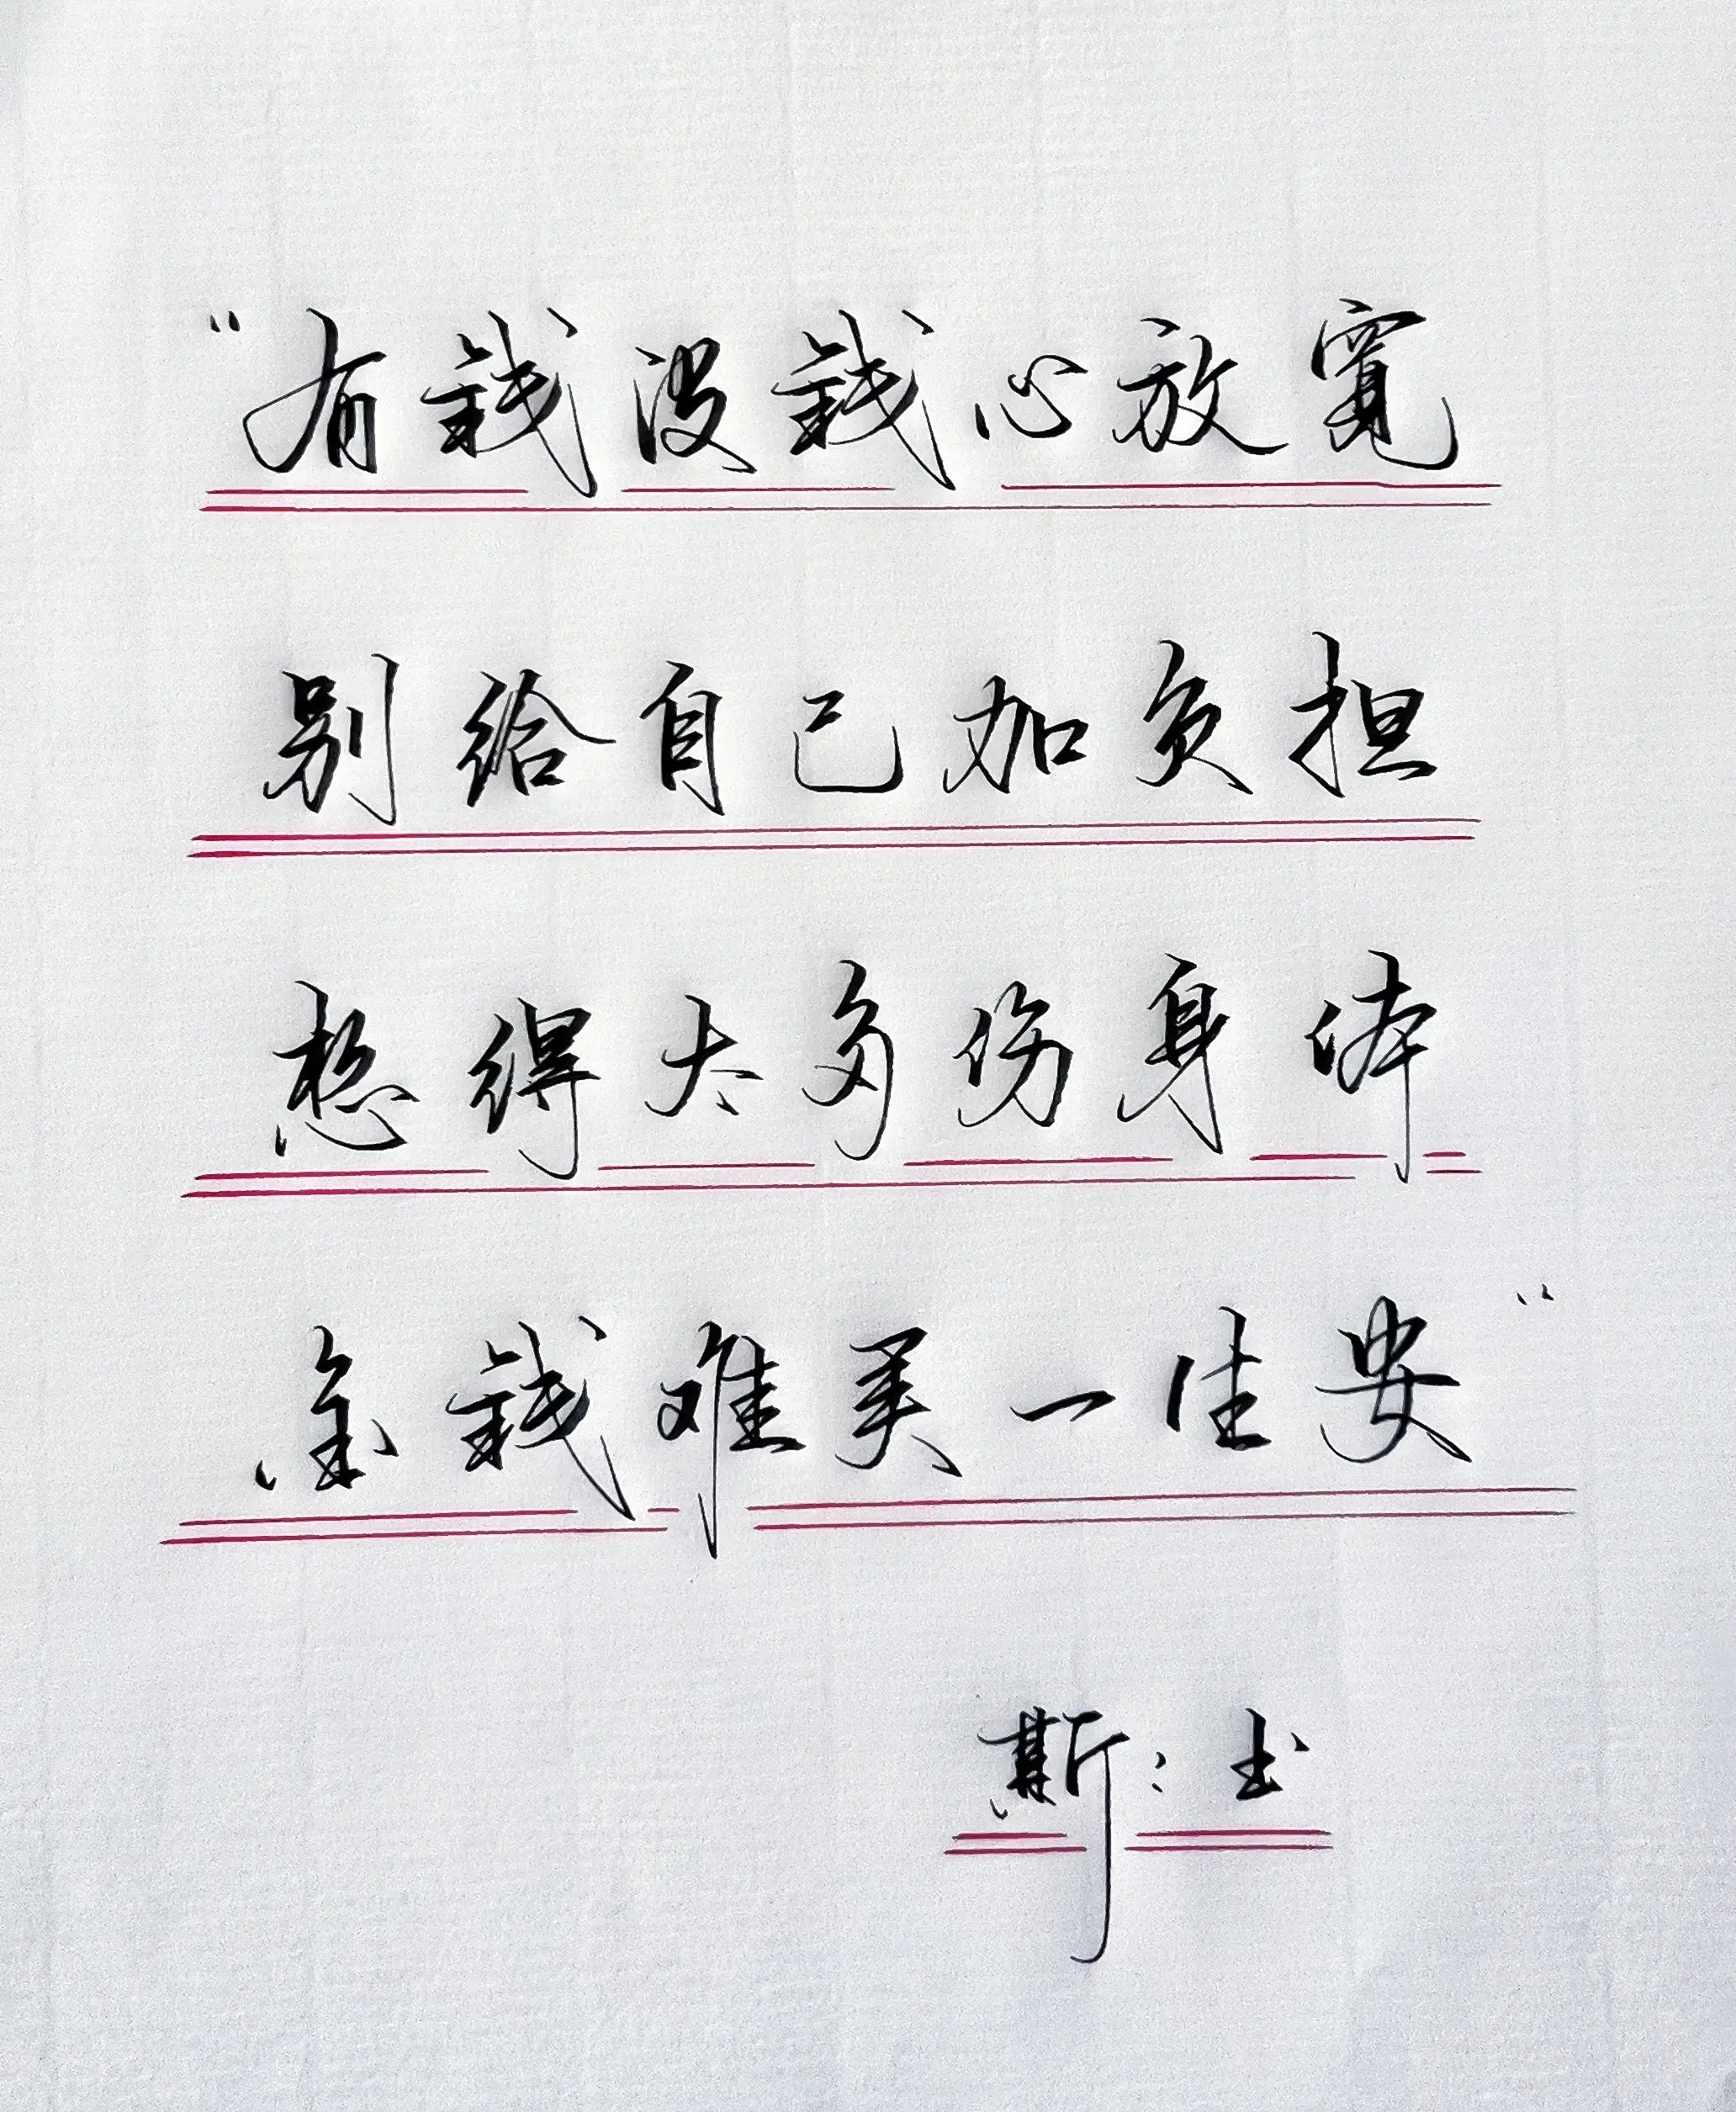 “有钱没钱心放宽
别给自己加负担
想得太多伤身体
金钱难买一生安”
斯：书